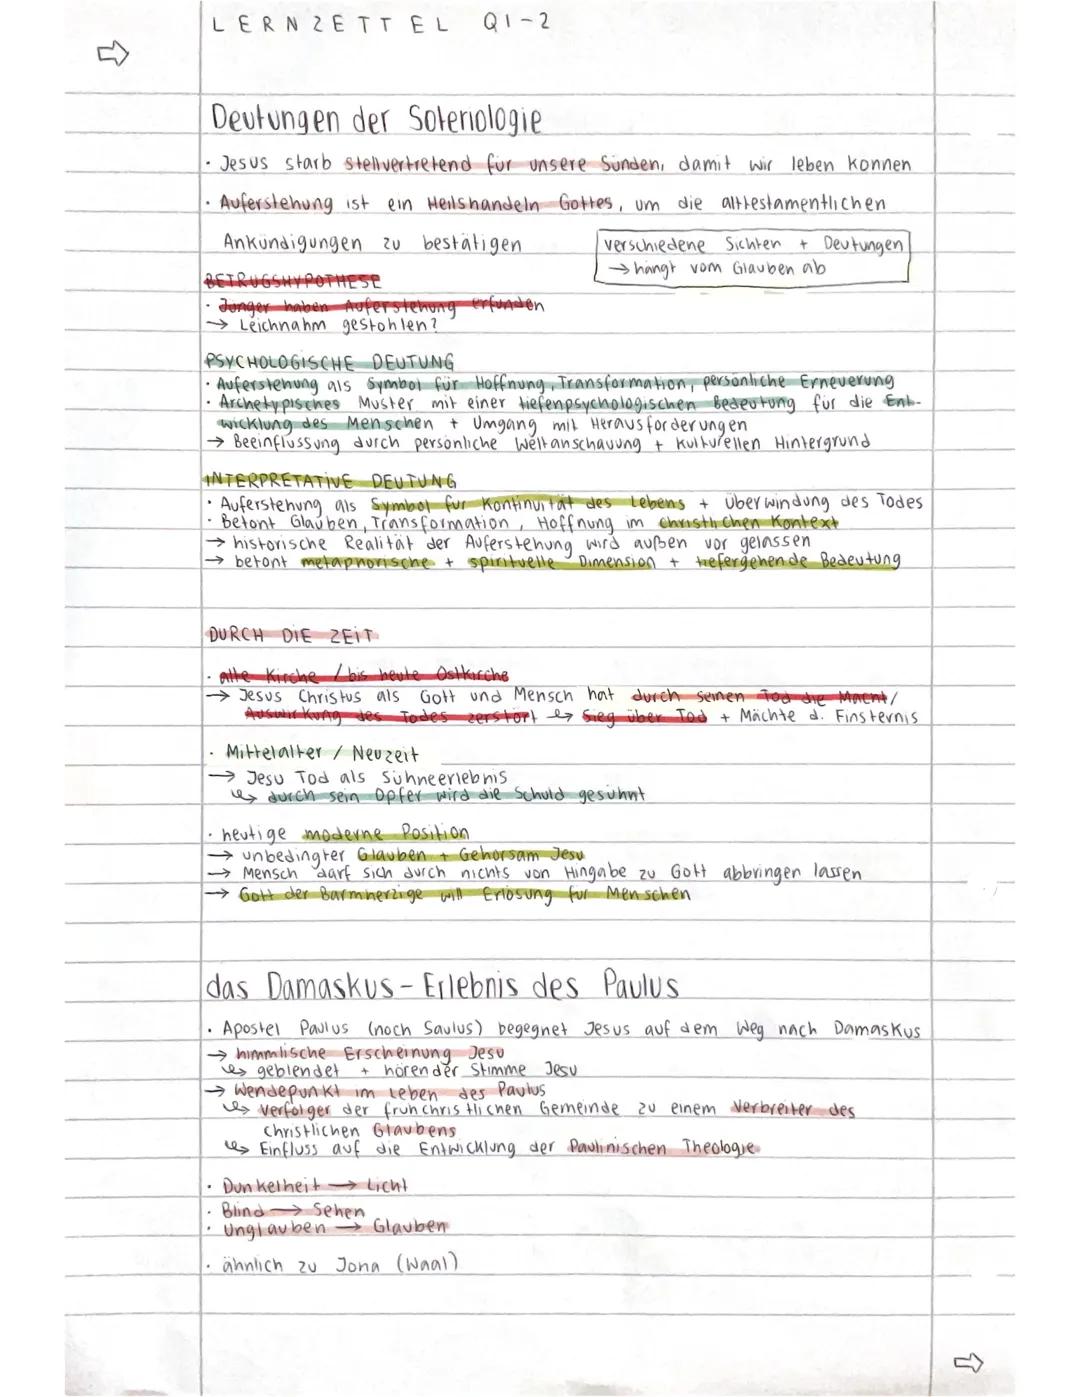 LERNZETTEL Q1-2
Deutungen der Soteriologie
· Jesus starb stellvertretend für unsere Sünden, damit wir leben können
· Auferstehung ist ein Heilshandeln Gottes, um die alttestamentlichen
Ankündigungen zu bestätigen
verschiedene Sichten + Deutungen
→ hängt vom Glauben ab
BETRUGSHYPOTHESE
· Jünger haben Auferstehung erfunden
→ Leichnahm gestohlen?
PSYCHOLOGISCHE DEUTUNG
· Auferstehung als Symbol für Hoffnung, Transformation, persönliche Erneuerung
· Archetypisches Muster mit einer tiefenpsychologischen Bedeutung für die Ent-
wicklung des Menschen + Umgang mit Herausforderungen
→ Beeinflussung durch persönliche Weltanschauung + kulturellen Hintergrund
INTERPRETATIVE DEUTUNG
· Auferstehung als Symbol für Kontinuität des Lebens + Überwindung des Todes
· Betont Glauben, Transformation, Hoffnung im christlichen Kontext
→ historische Realität der Auferstehung wird außen vor gelassen
→ betont metaphorische + spirituelle Dimension + tiefergehende Bedeutung
DURCH DIE ZEIT
· alte Kirche / bis heute Ostkirche
→ Jesus Christus als Gott und Mensch hat durch seinen Tod die Macht/
Auswirkung des Todes zerstört ↳ Sieg über Tod + Mächte d. Finsternis
· Mittelalter / Neuzeit
→ Jesu Tod als Sühneerlebnis
↳ durch sein Opfer wird die Schuld gesühnt
· heutige moderne Position
→ unbedingter Glauben + Gehorsam Jesu
→ Mensch darf sich durch nichts von Hingabe zu Gott abbringen lassen
→ Gott der Barmherzige will Erlösung für Menschen
das Damaskus-Erlebnis des Paulus
· Apostel Paulus (noch Saulus) begegnet Jesus auf dem Weg nach Damaskus
→ himmlische Erscheinung Jesu
↳ geblendet + hörender Stimme Jesu
→ Wendepunkt im Leben des Paulus
↳ Verfolger der frühchristlichen Gemeinde zu einem Verbreiter des
christlichen Glaubens
↳ Einfluss auf die Entwicklung der Paulinischen Theologie
· Dunkelheit → Licht
· Blind → Sehen
· Unglauben → Glauben
· ähnlich zu Jona (Waal)